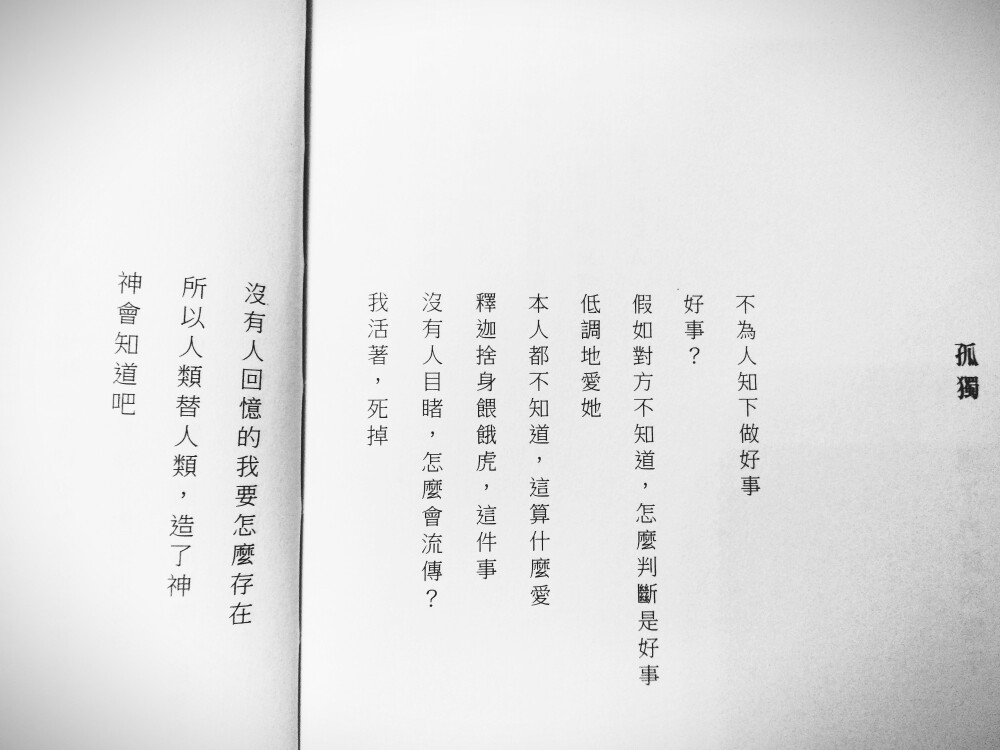 孤獨
不為人知下做好事
好事？
假如對方不知道，怎麼判斷是好事
低調地愛她
本人都不知道，這算什麼愛
釋迦捨身餵餓虎，這件事
沒有人目睹，怎麼會流傳？
我活著，死掉
沒有人回憶的我要怎麼存在
所以人類替人類，造了神
神會知道吧